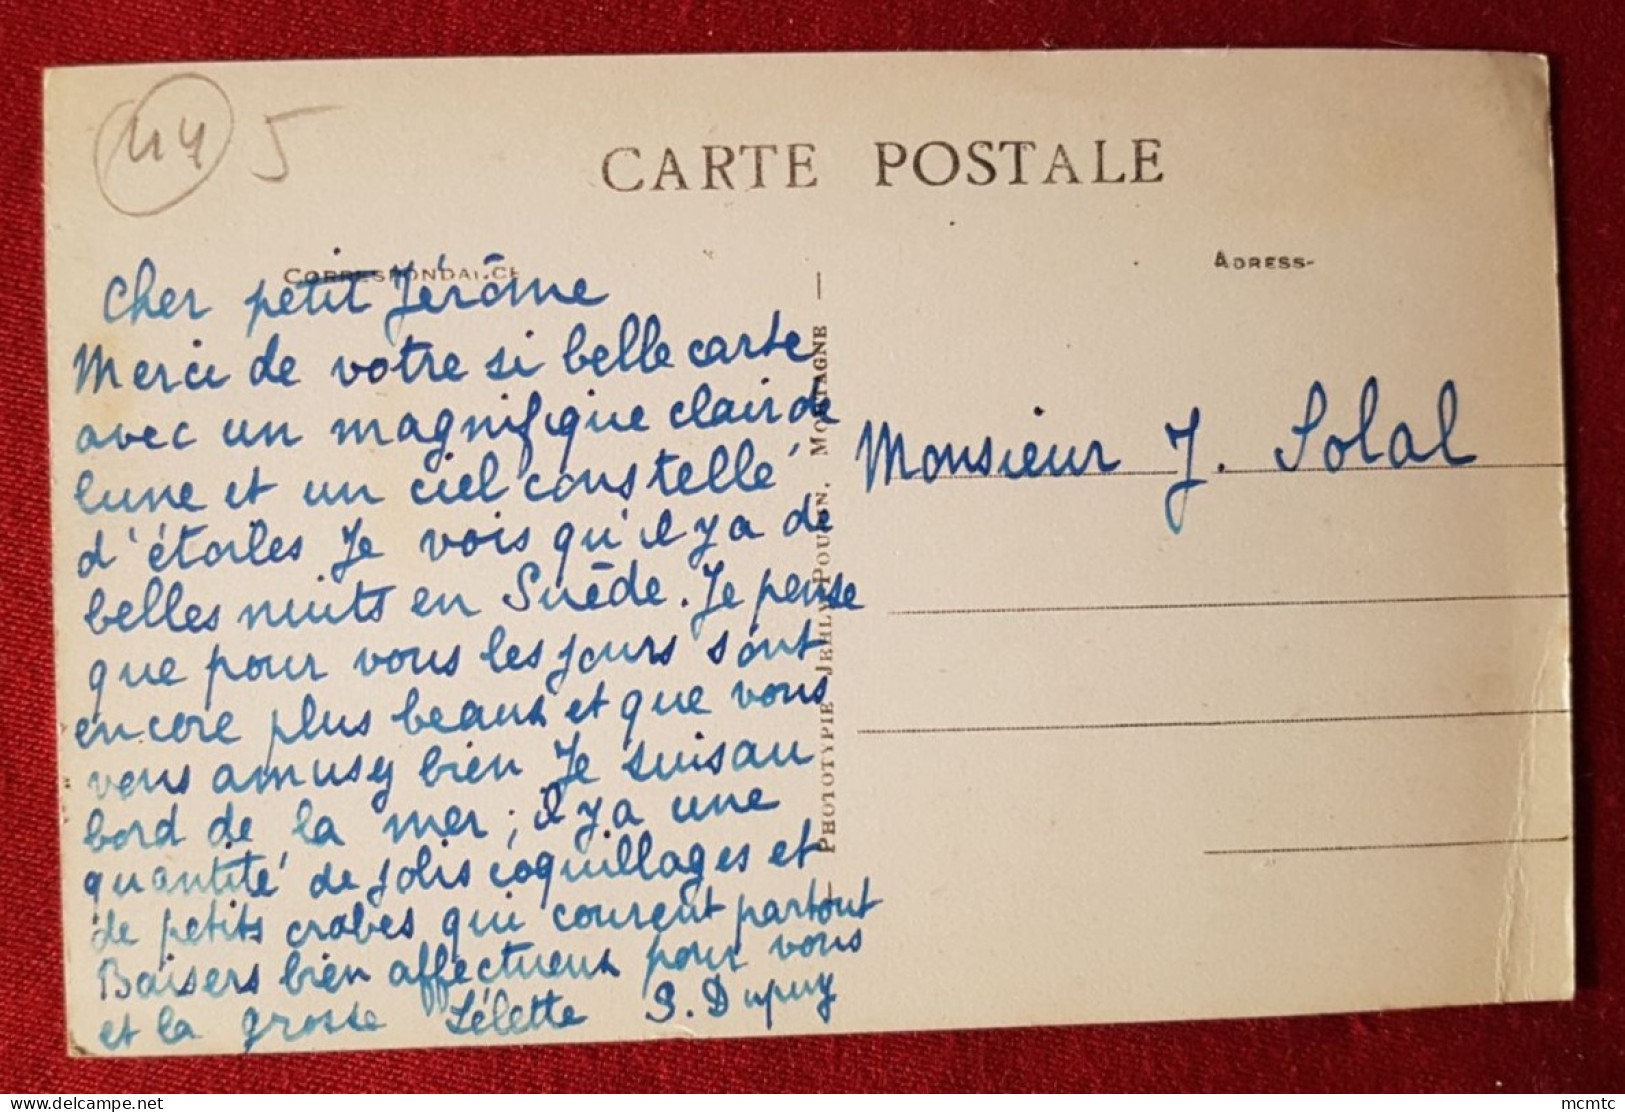 44 5
CARTE POSTALE
CORRESPONDANCE
ADRESS
Cher petit Jérôme
Merci de votre si belle carte
avec un magnifique clair de
lune et un ciel constellé
d'étoiles Je vois qu'il y a de
belles nuits en Suède. Je pense
que pour vous les jours sont
encore plus beaux et que vous
vous amusez bien Je suis au
bord de la mer, il y a une
quantité de jolis coquillages et
de petits crabes qui courent partout
Baisers bien affectueux pour vous
et la grosse Lélette S. Dupuy
PHOTOTYPIE JEHLY-POUPIN. MORTAGNE
Monsieur J. Solal
mcmtc